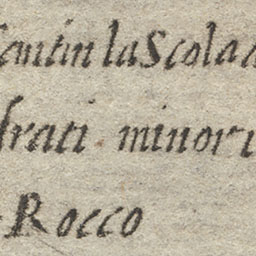 la Scola
frati minori
Rocco